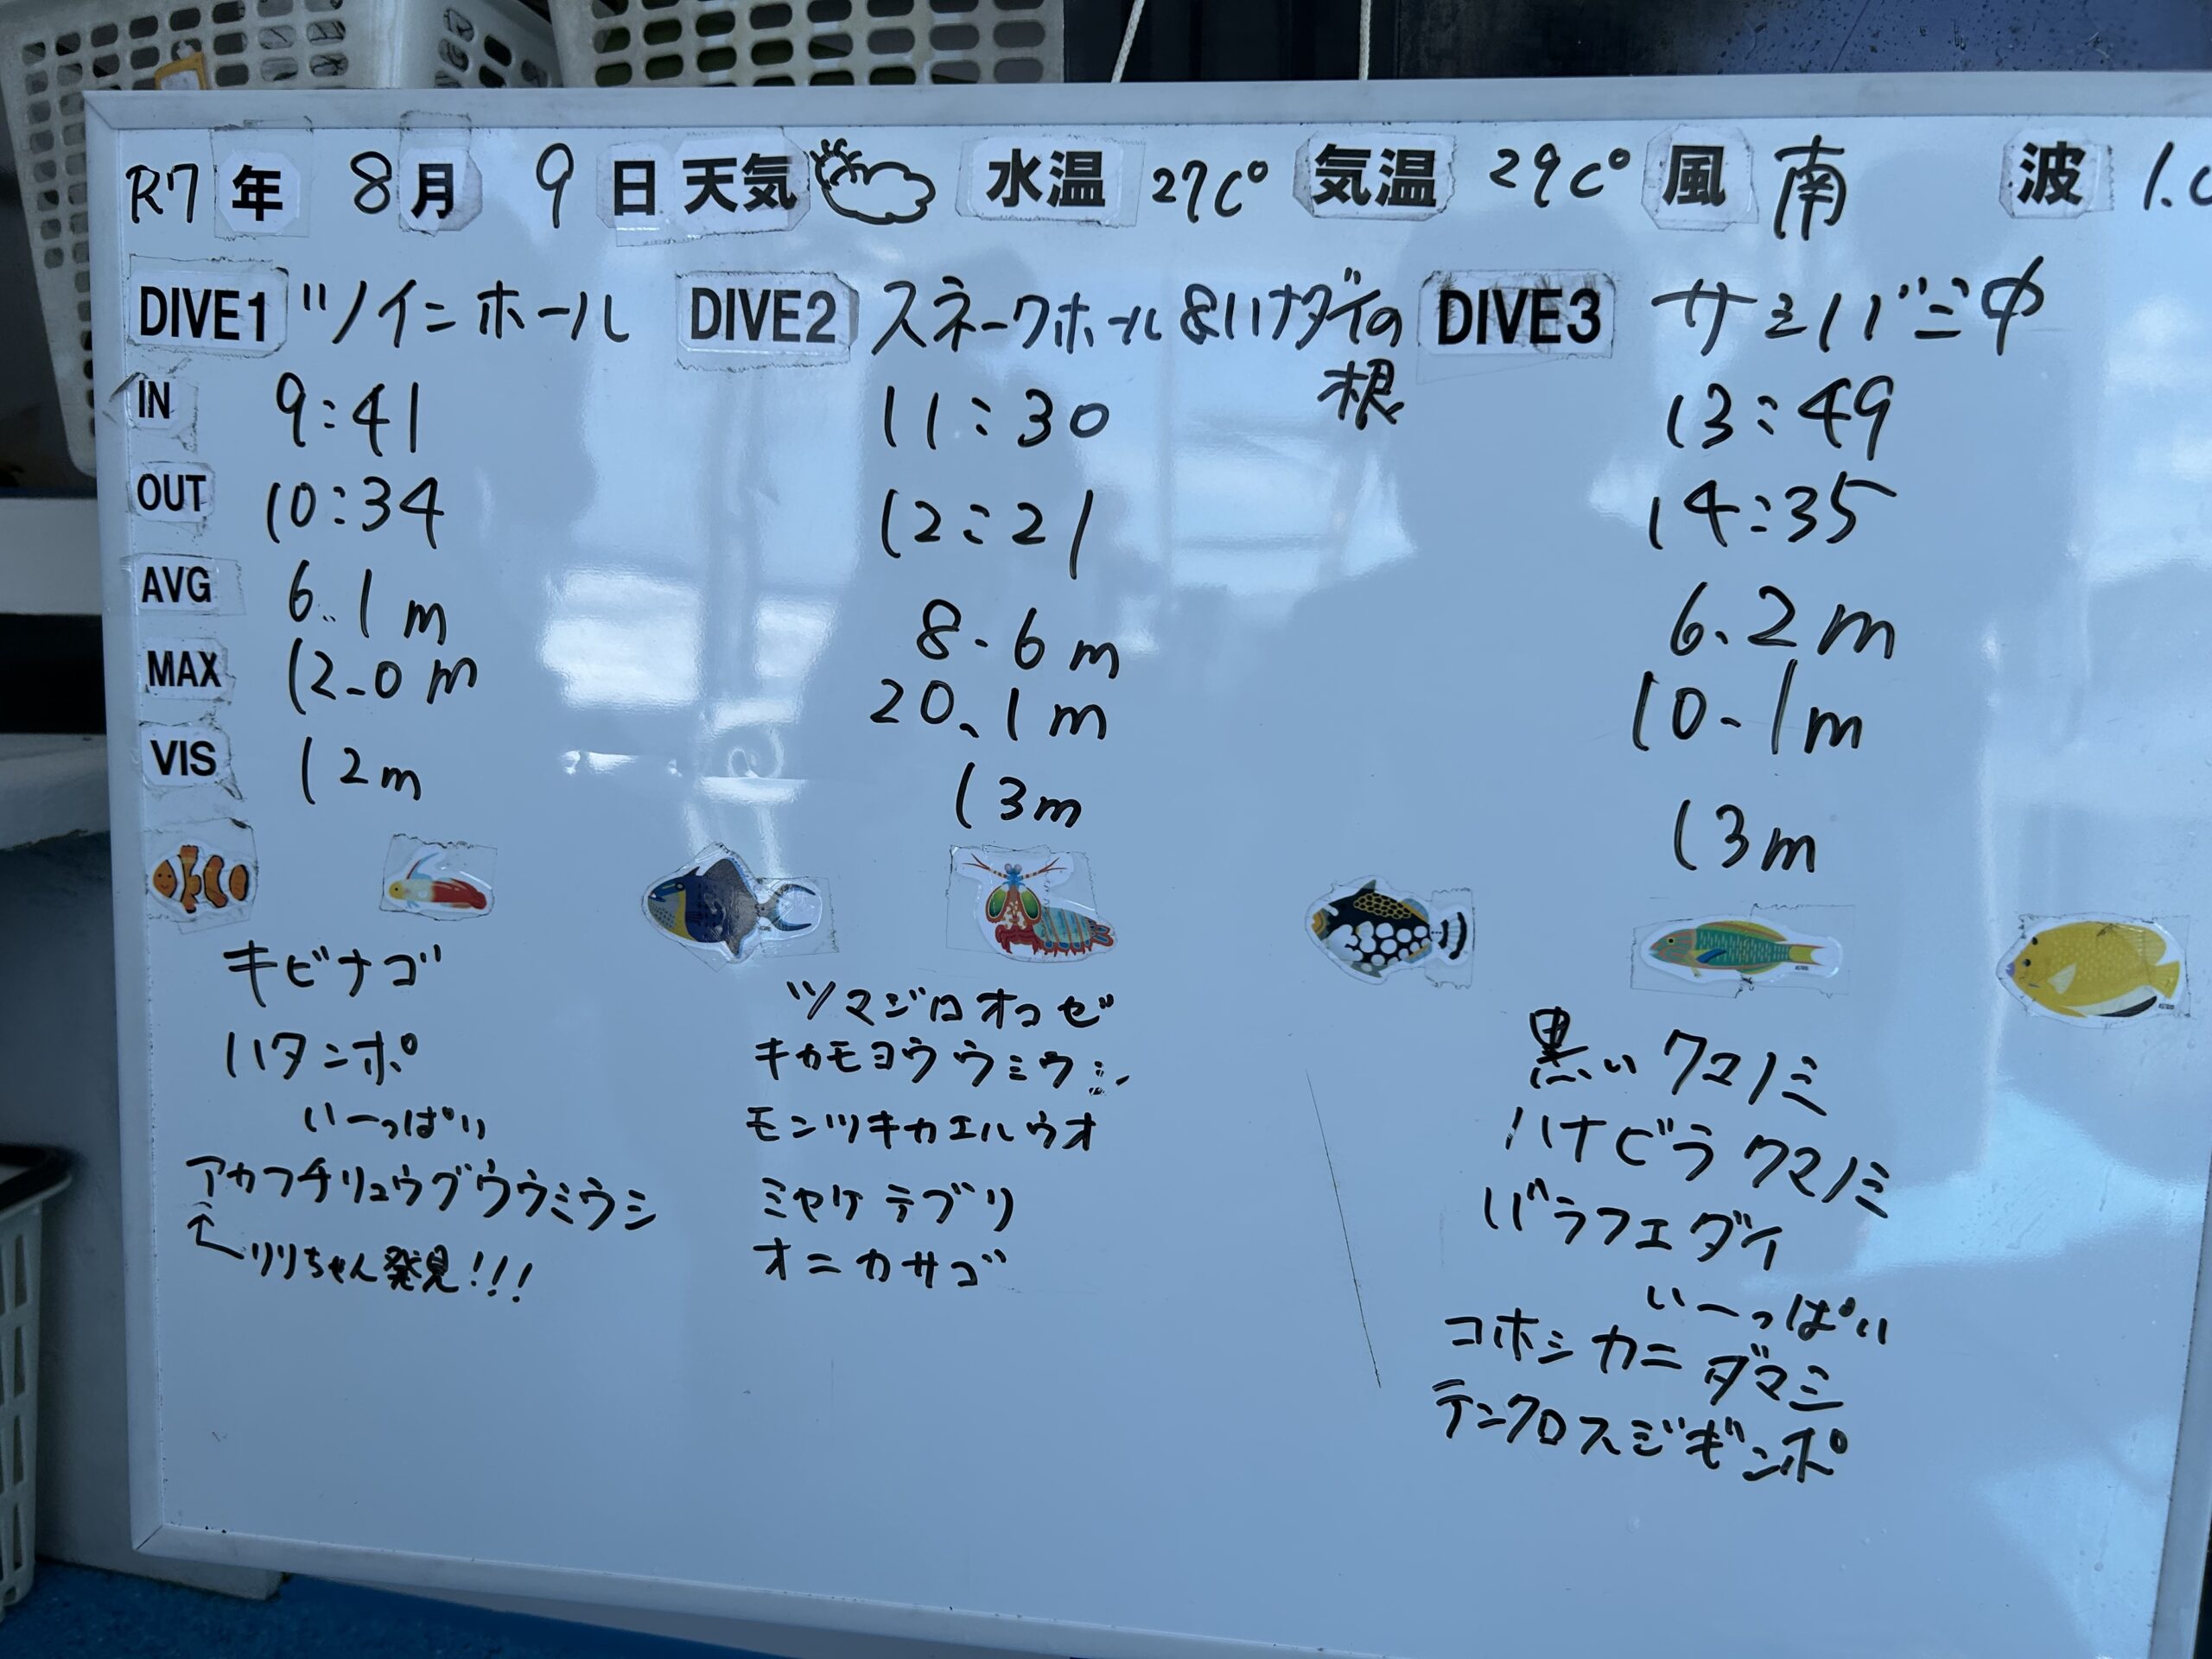 R7年 8月 9日 天気 水温 27C° 気温 29C° 風 南 波 1.0
DIVE1 ツインホール DIVE2 スネークホール&ハナダイの根 DIVE3 サシバ沖
IN 9:41 11:30 13:49
OUT 10:34 12:21 14:35
AVG 6.1m 8.6m 6.2m
MAX 12.0m 20.1m 10.1m
VIS 12m 13m 13m
キビナゴ
ハタンポ
いーっぱい
アカフチリュウグウウミウシ
リリちゃん発見!!!
ツマジロオコゼ
キカモヨウウミウシ
モンツキカエルウオ
ミヤケテグリ
オニカサゴ
黒いクマノミ
ハナビラクマノミ
バラフエダイ
いーっぱい
コホシカニダマシ
テンクロスジギンポ